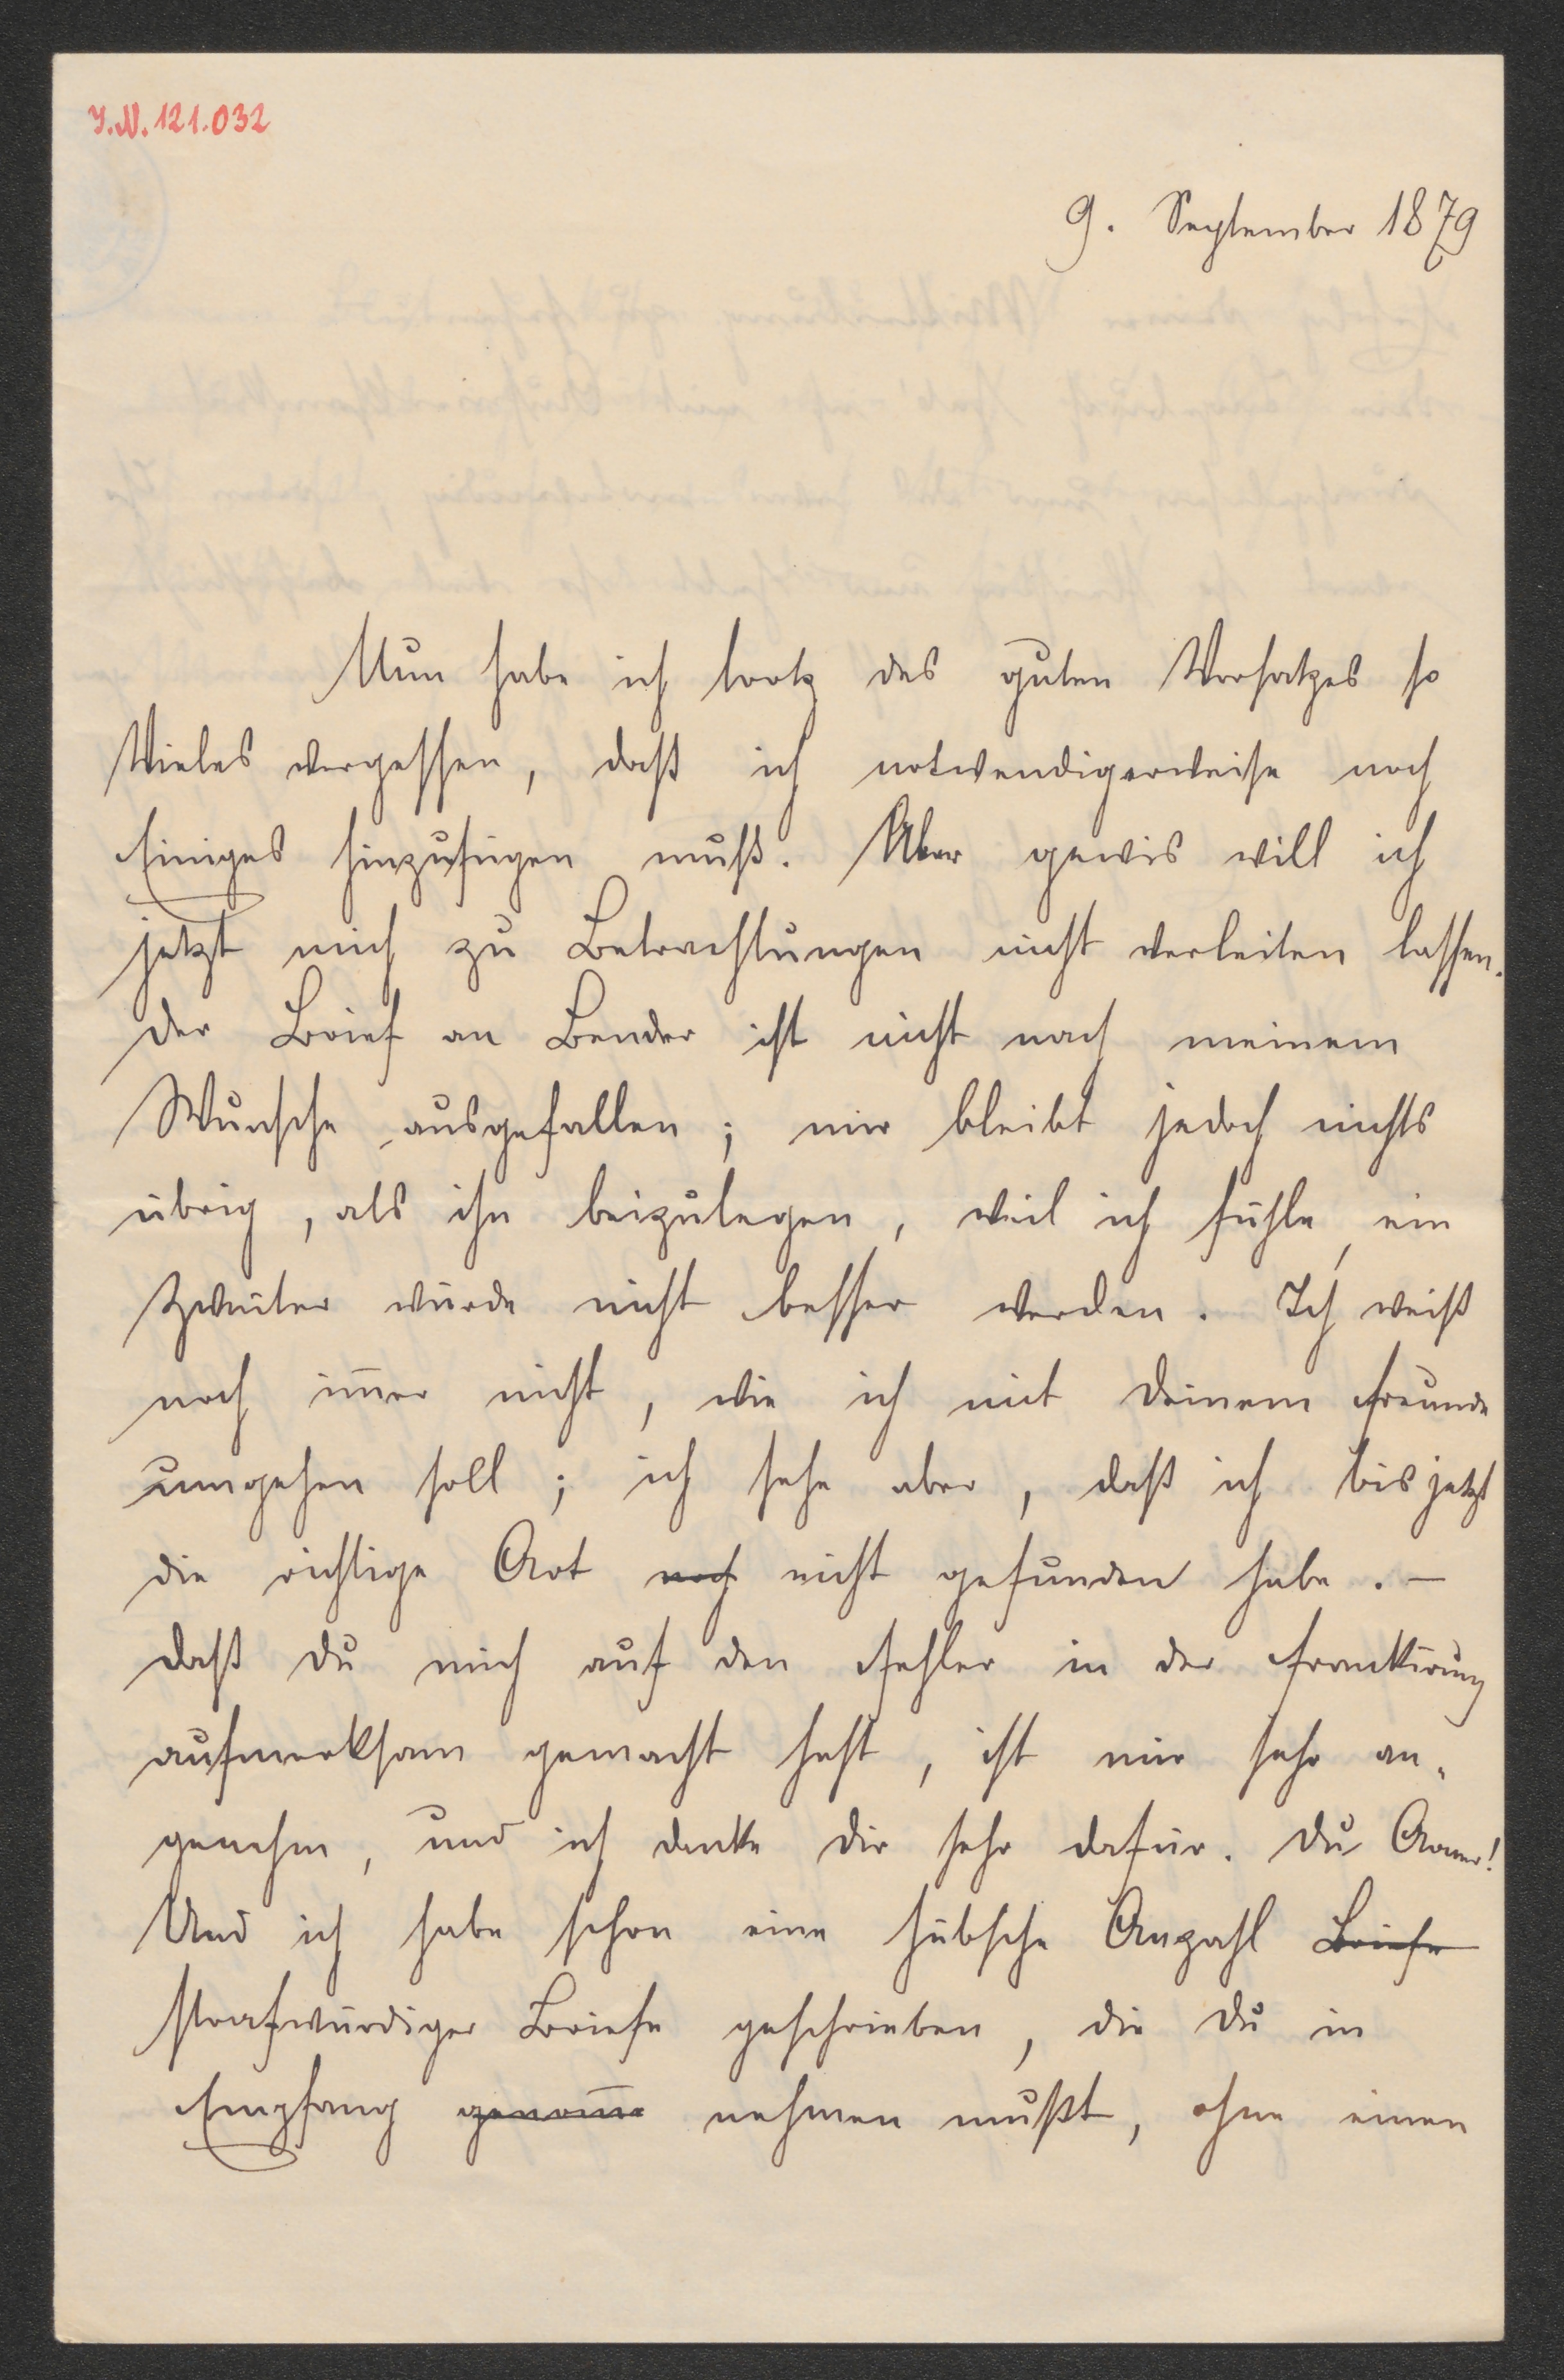 I.N. 121.032
9. September 1879
Nun habe ich trotz des guten Vorsatzes so
Vieles vergessen, daß ich notwendigerweise noch
Einiges hinzufügen muß. Aber gewis will ich
jetzt mich zu Betrachtungen nicht verleiten lassen.
Der Brief an Bender ist nicht nach meinem
Wunsche ausgefallen; mir bleibt jedoch nichts
übrig, als ihn beizulegen, weil ich fühle, ein
Zweiter würde nicht besser werden. Ich weiß
noch im̅er nicht, wie ich mit Deinem Freunde
umgehen soll; ich sehe aber, daß ich bis jetzt
die richtige Art noch nicht gefunden habe. –
Daß Du mich auf den Fehler in der Frankirung
aufmerksam gemacht hast, ist mir sehr an-
genehm, und ich danke Dir sehr dafür. Du Armer!
Und ich habe schon eine hübsche Anzahl Briefe
strafwürdiger Briefe geschrieben, die Du in
Empfang genom̅e nehmen mußt, ohne einen